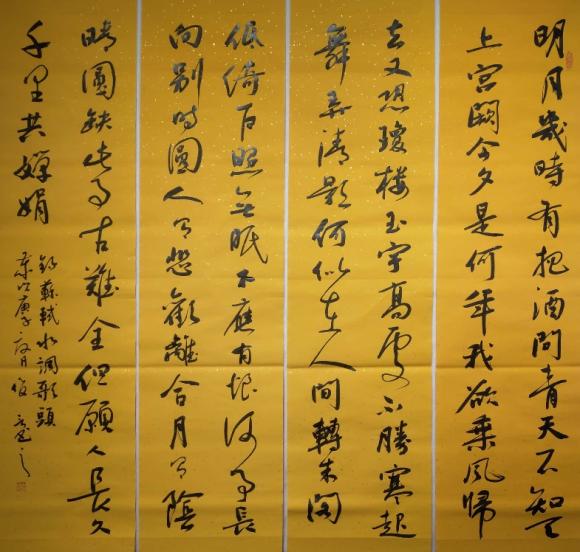 明月幾時有把酒問青天不知天
上宮闕今夕是何年我欲乘風歸
去又恐瓊樓玉宇高處不勝寒起
舞弄清影何似在人間轉朱閣
低綺戶照無眠不應有恨何事長
向別時圓人有悲歡離合月有陰
晴圓缺此事古難全但願人長久
千里共嬋娟
錄蘇軾水調歌頭
庚子